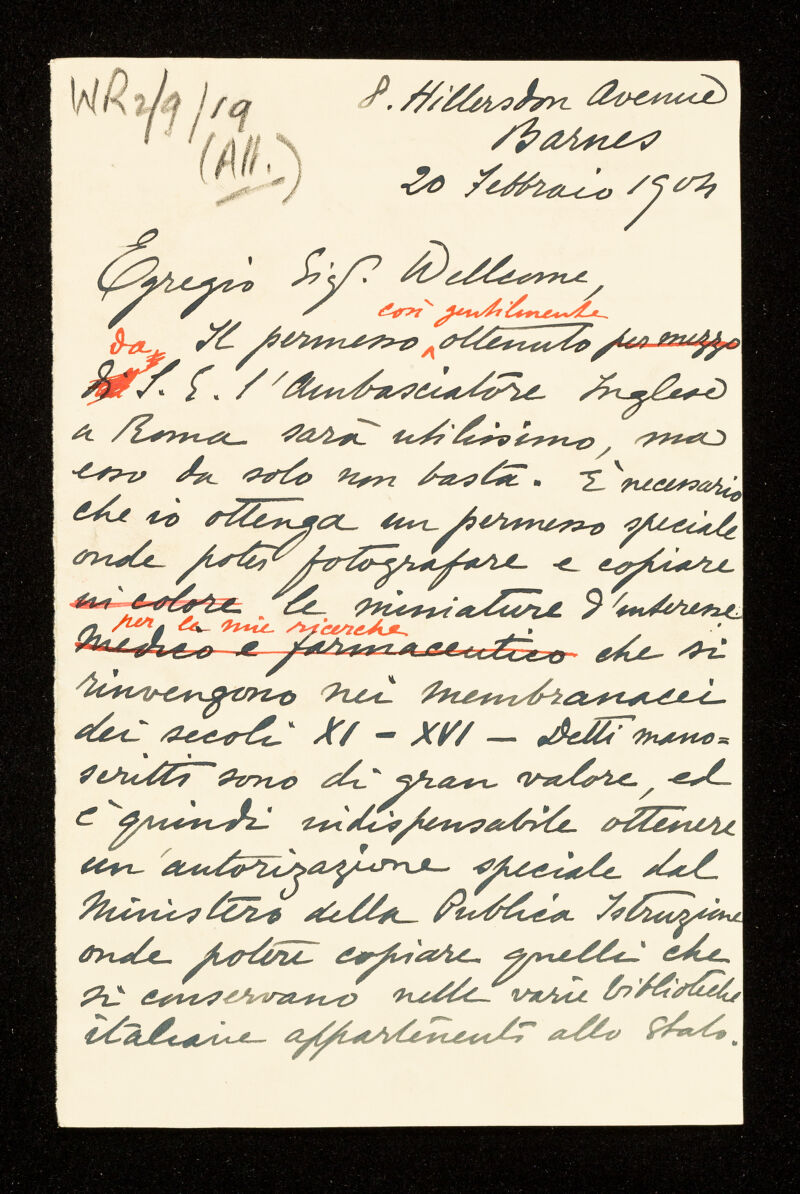 WR2/9/19
(All.)
8. Hillersdon Avenue
Barnes
20 Febbraio 1904
Egregio Sigr. Wellcome,
così gentilmente
Il permesso ottenuto per mezzo
da
di S. E. l'Ambasciatore Inglese
a Roma sarà utilissimo, ma
esso da solo non basta. È necessario
che io ottenga un permesso speciale
onde poter fotografare e copiare
in colore le miniature d'interesse
per le mie ricerche
medico e farmaceutico che si
rinvengono nei membranacei
dei secoli XI - XVI - Detti mano=
scritti sono di gran valore, ed
è quindi indispensabile ottenere
un'autorizzazione speciale dal
Ministero della Publica Istruzione
onde potere copiare quelli che
si conservano nelle varie biblioteche
italiane appartenenti allo Stato.